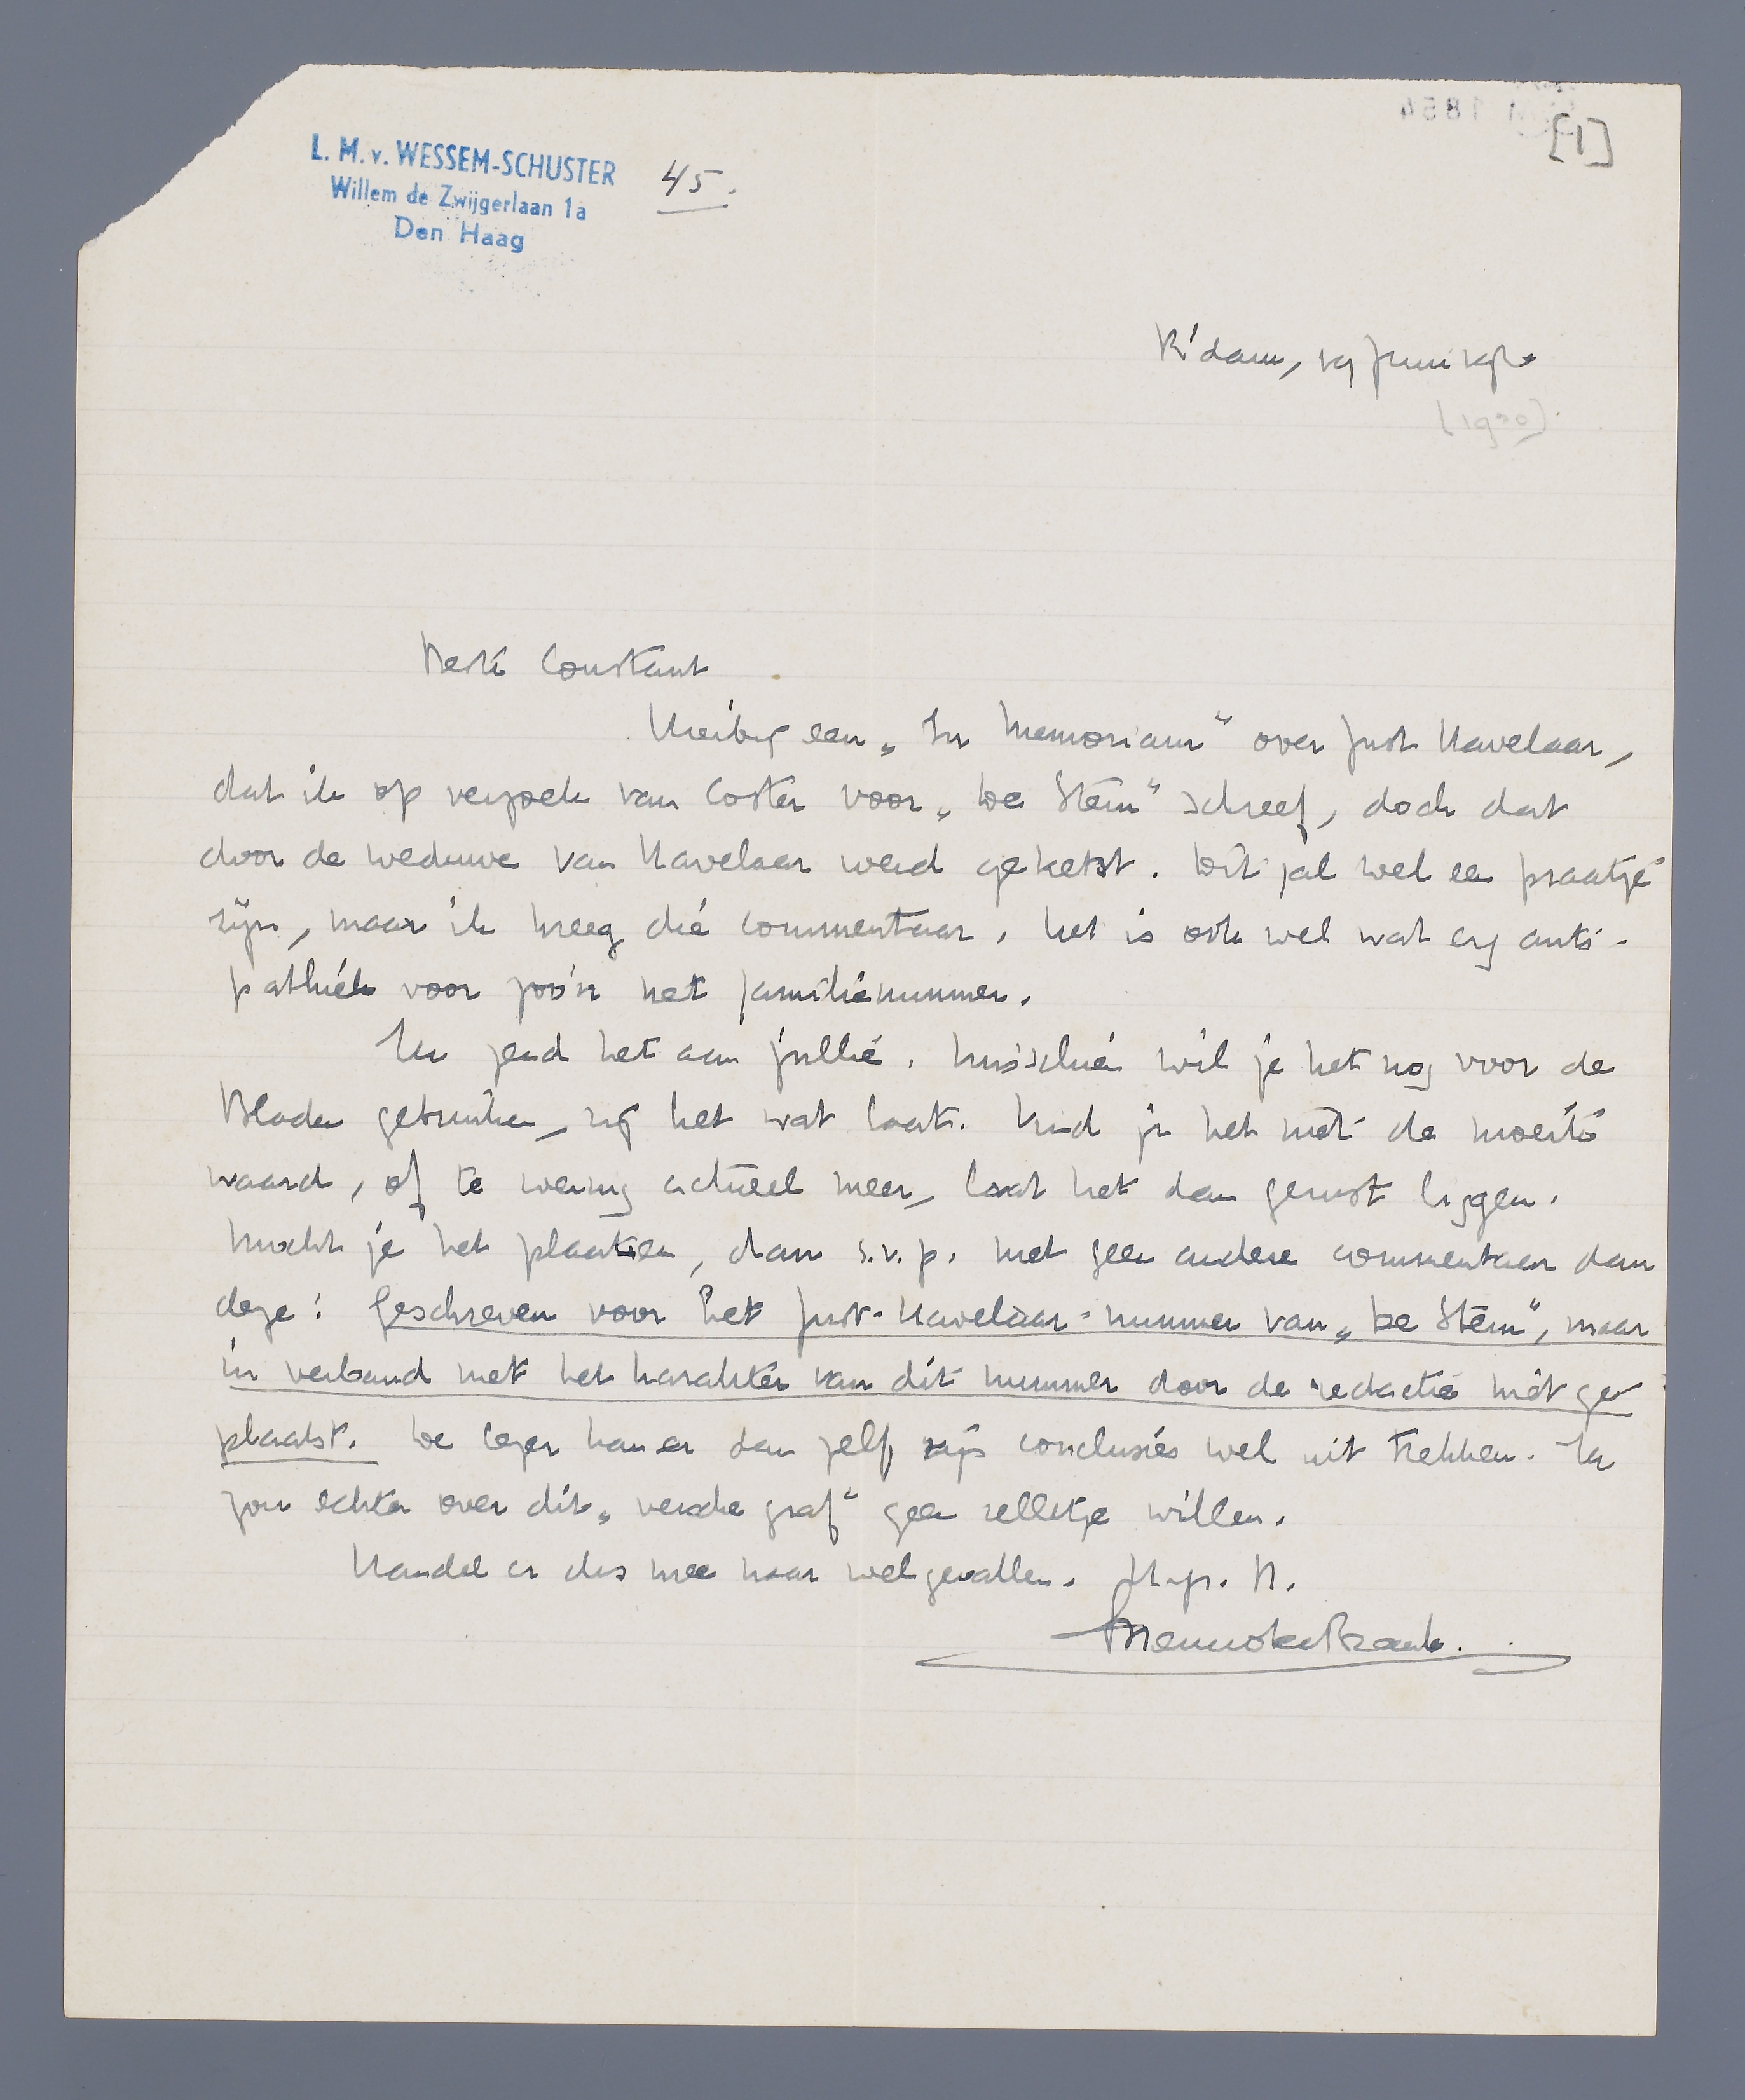 L. M. v. WESSEM-SCHUSTER
Willem de Zwijgerlaan 1a
Den Haag
45.
[1]
R'dam, 19 Juni 1930
[1930]
Beste Constant
Hierbij een „In Memoriam" over Just Havelaar,
dat ik op verzoek van Coster voor „De Stem" schreef, doch dat
door de weduwe van Havelaar werd geketst. Dit zal wel een praatje
zijn, maar ik kreeg die commentaar. Het is ook wel wat erg anti-
pathiek voor zoo'n net familienummer.
Ik zend het aan jullie. Misschien wil je het nog voor de
Bladen gebruiken, zij het wat laat. Vind je het niet de moeite
waard, of te weinig actueel meer, laat het dan gerust liggen.
Mocht je het plaatsen, dan s.v.p. met geen andere commentaar dan
deze: Geschreven voor het Just-Havelaar-nummer van „De Stem", maar
in verband met het karakter van dit nummer door de redactie niet ge-
plaatst. De lezer kan er dan zelf zijn conclusies wel uit trekken. Ik
zou echter over dit „versche graf" geen relletje willen.
Handel er dus mee naar welgevallen. H.gr. H.
Menno ter Braak.